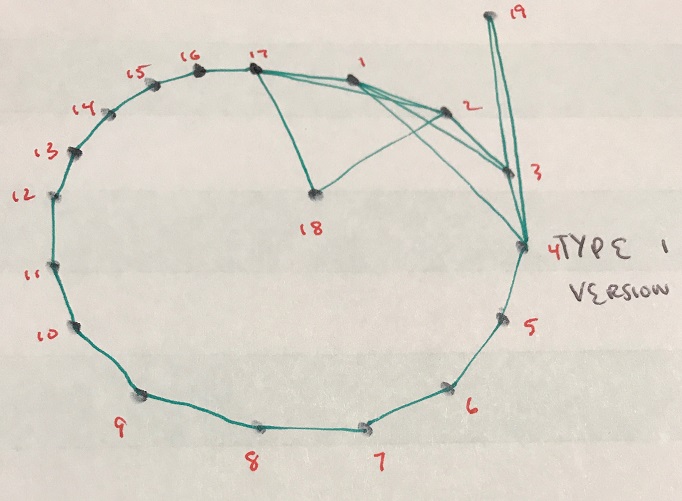 19
17
1
16
15
2
14
13
3
12
18
4 TYPE 1
VERSION
11
5
10
6
9
8
7